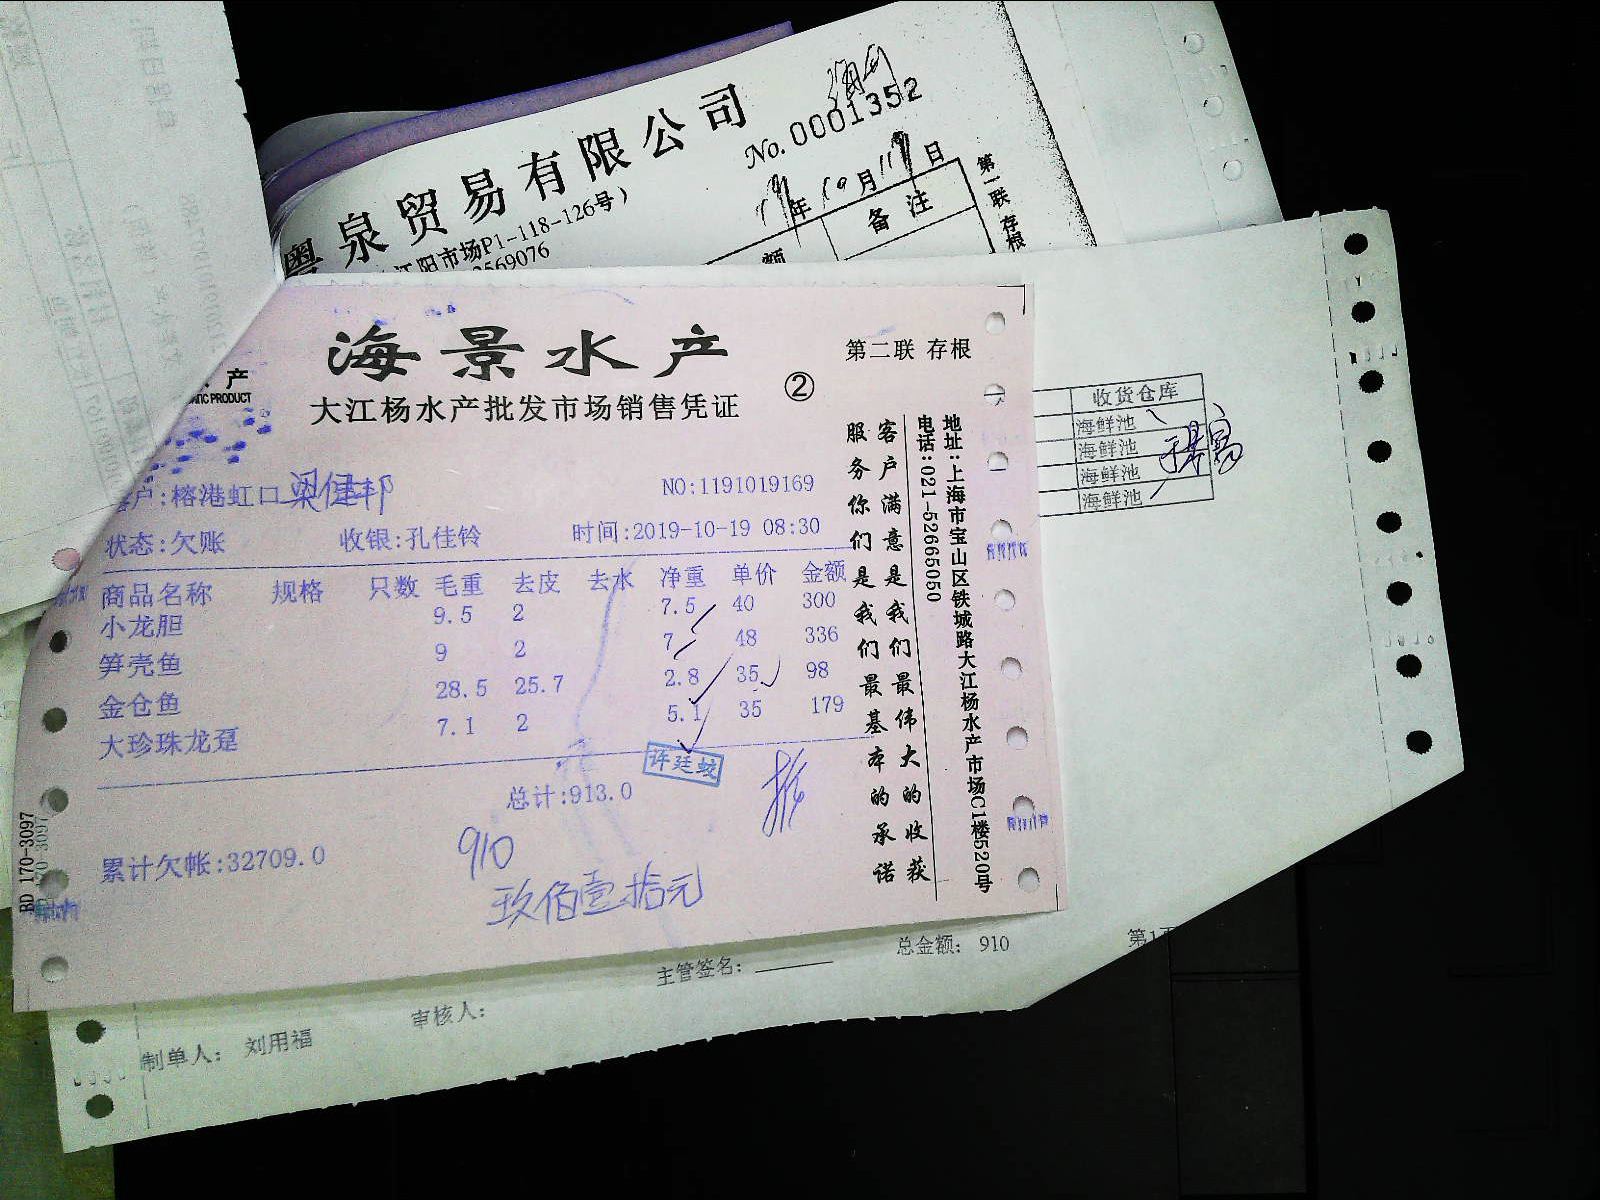 泉贸易有限公司
No.0001352
江阳市场P1-118-126号)
569076
19年10月19日
额
备注
第一联 存根
海景水产
第二联 存根
产
TIC PRODUCT
大江杨水产批发市场销售凭证
②
户:榕港虹口梁健邦
NO:1191019169
状态:欠账 收银:孔佳铃 时间:2019-10-19 08:30
商品名称 规格 只数 毛重 去皮 去水 净重 单价 金额
小龙胆 9.5 2 7.5 40 300
笋壳鱼 9 2 7 48 336
金仓鱼 28.5 25.7 2.8 35 98
大珍珠龙趸 7.1 2 5.1 35 179
许廷蛟
总计:913.0
910
累计欠帐:32709.0
玖佰壹拾元
BD 170-3097
客户满意是我们最伟大的收获
服务你们是我们最基本的承诺
地址:上海市宝山区铁城路大江杨水产市场C1楼520号
电话:021-52665050
收货仓库
海鲜池
海鲜池
海鲜池
海鲜池
总金额: 910
第1页
主管签名:
审核人:
制单人: 刘用福